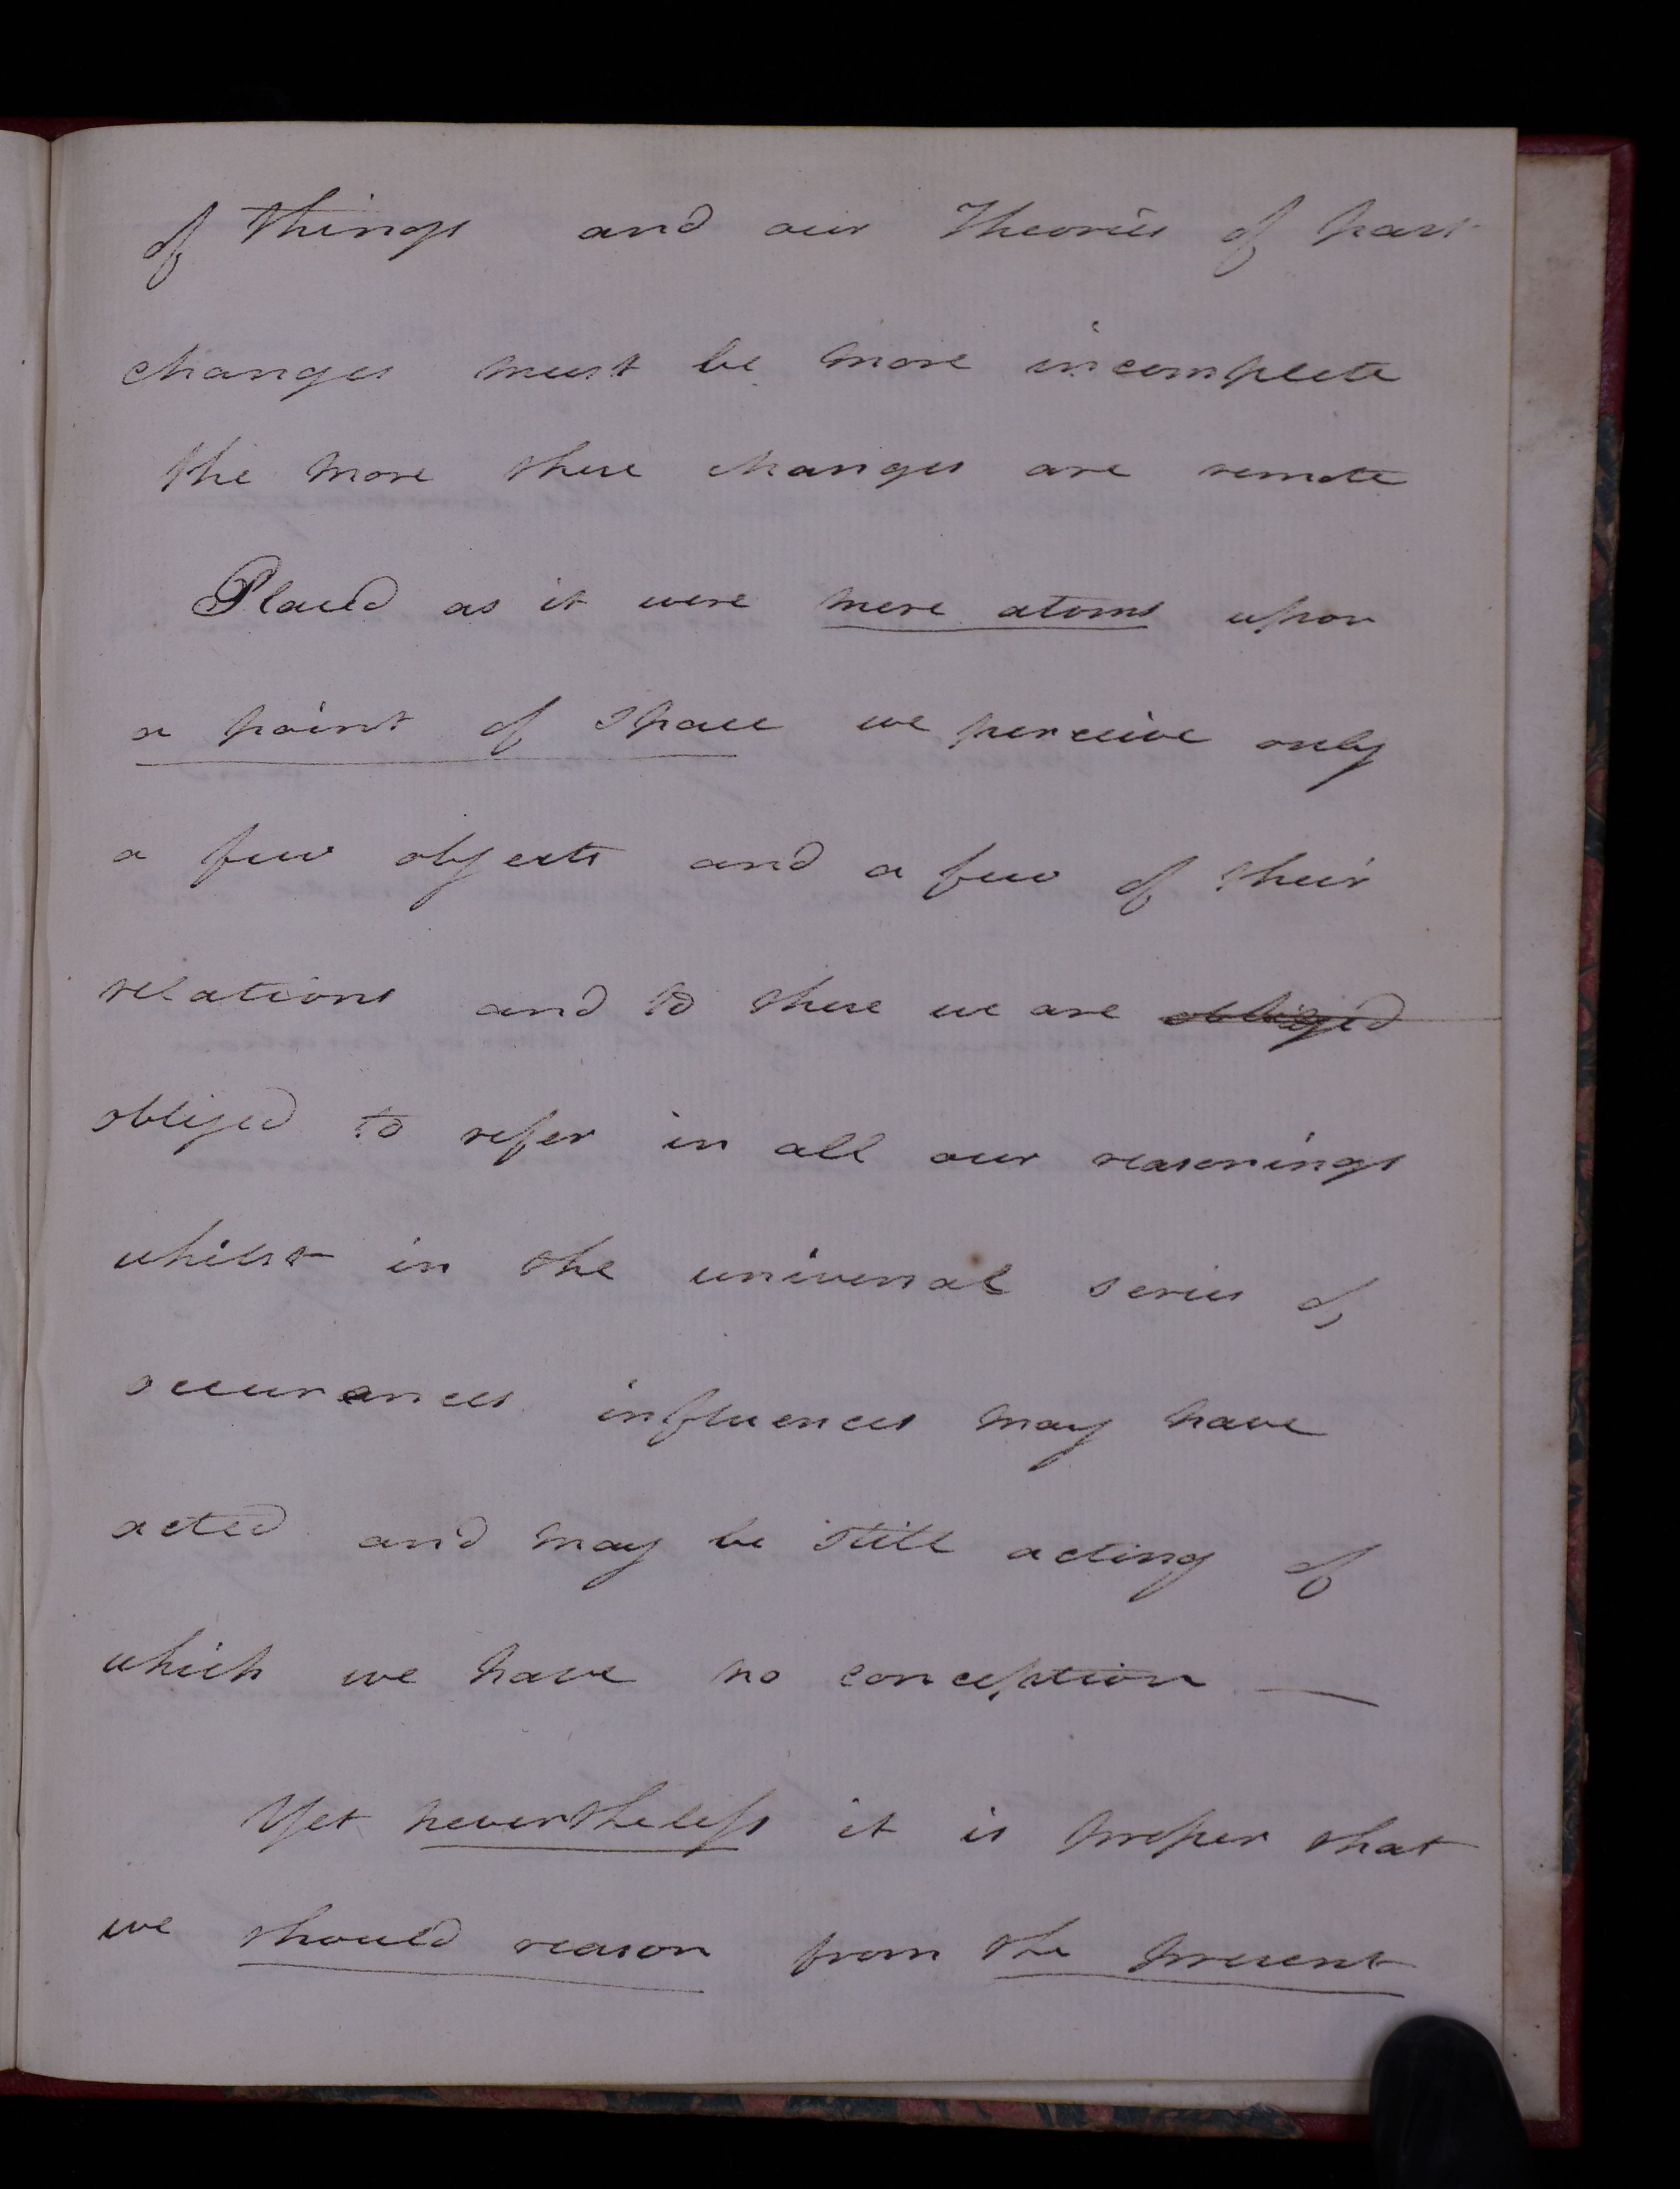 of things and our Theories of past
changes must be more incomplete
the more these changes are remote
Placed as it were mere atoms upon
a point of space we perceive only
a few objects and a few of their
relations and to these we are obliged
obliged to refer in all our reasonings
whilst in the universal series of
occurances influences may have
acted and may be still acting of
which we have no conception —
Yet nevertheless it is proper that
we should reason from the present